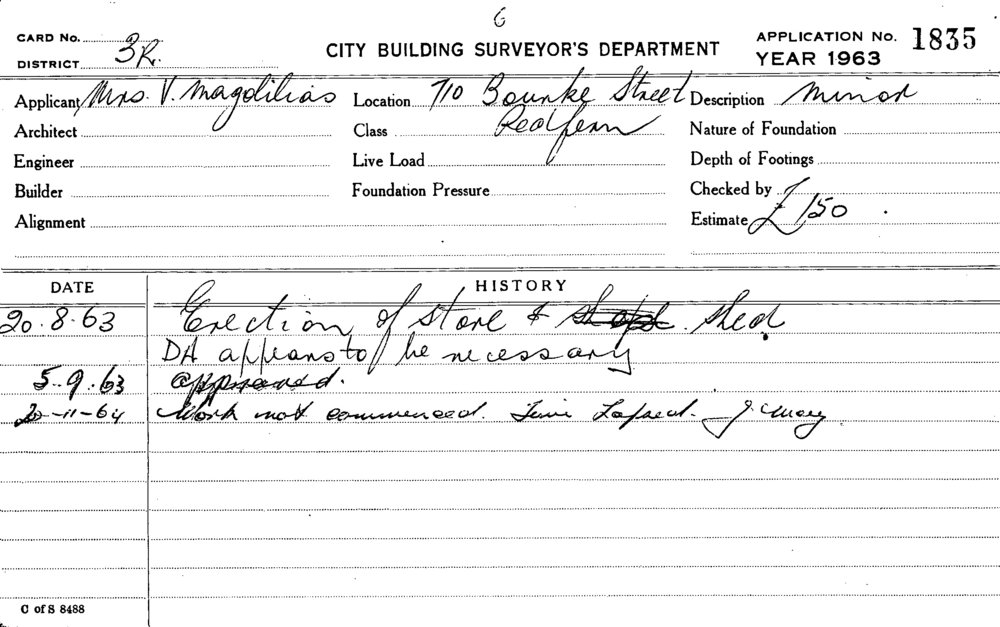 G
CARD No. CITY BUILDING SURVEYOR'S DEPARTMENT APPLICATION No. 1835
DISTRICT 3R. YEAR 1963
Applicant Mrs. V. Magdilias Location 710 Bourke Street Description Minor
Architect Class Redfern Nature of Foundation
Engineer Live Load Depth of Footings
Builder Foundation Pressure Checked by
Alignment Estimate £150
DATE HISTORY
20.8.63 Erection of store & shed
DA appears to be necessary
5.9.63 approved.
20-11-64 Work not commenced. Time Lapsed.
C of S 8488